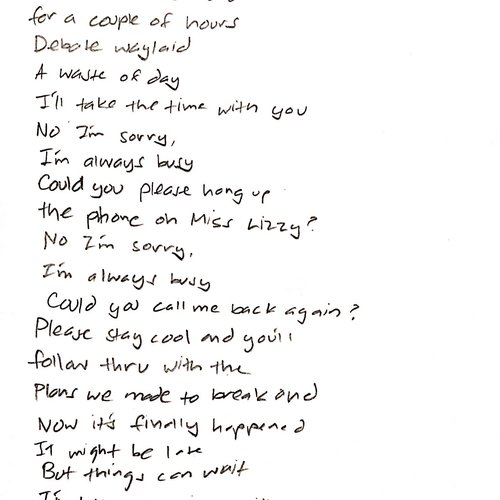 for a couple of hours
Debate waylaid
A waste of day
I'll take the time with you
No I'm sorry,
I'm always busy
Could you please hang up
the phone on Miss Lizzy?
No I'm sorry,
I'm always busy
Could you call me back again?
Please stay cool and you'll
follow thru with the
Plans we made to break and
Now it's finally happened
It might be late
But things can wait
I'll